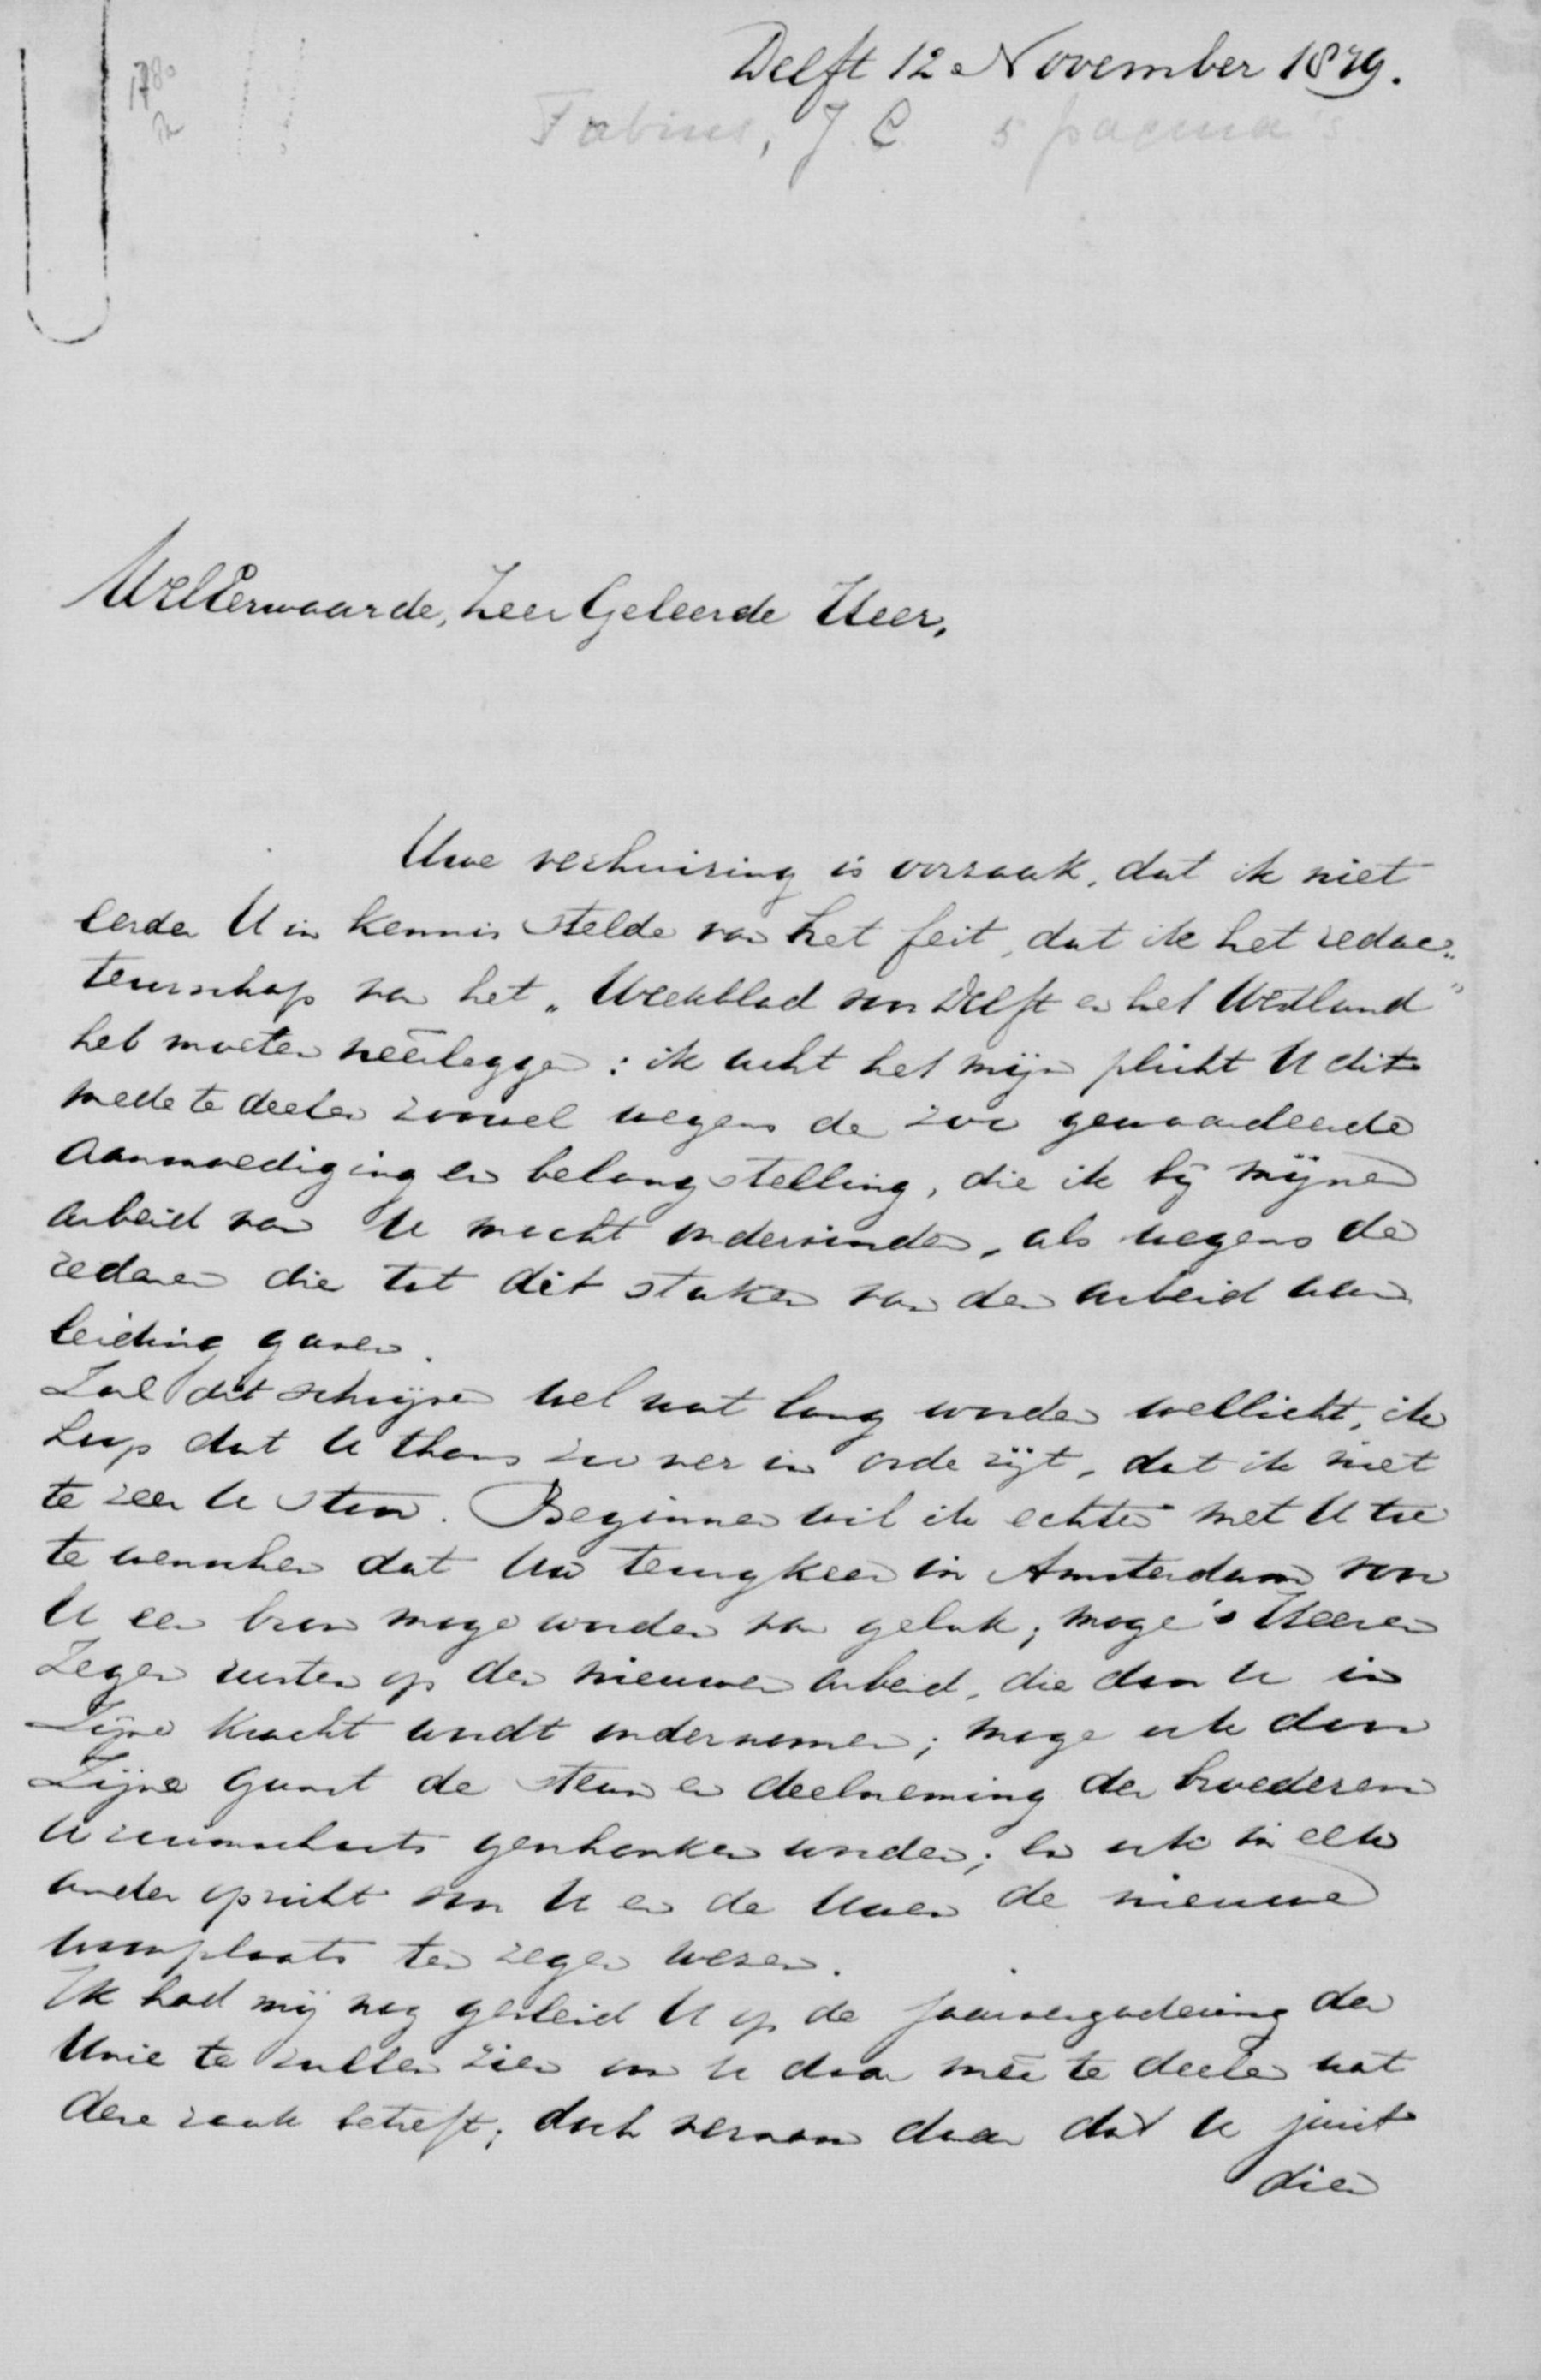 Delft 12 November 1879.
1780
Fabius, J. C. 5 pagina's
WelEerwaarde, Zeer Geleerde Heer,
Uwe verhuizing is oorzaak, dat ik niet
eerder U in kennis stelde van het feit, dat ik het redac-
teurschap van het „Weekblad van Delft en het Westland"
heb moeten neêrleggen: ik acht het mijn plicht U dit
mede te deelen zoowel wegens de zoo gewaardeerde
aanmoediging en belangstelling, die ik bij mijnen
arbeid van U mocht ondervinden, als wegens de
redenen die tot dit staken van den arbeid aan
leiding gaven.
Zal dit schrijven wel wat lang worden wellicht, ik
hoop dat U thans zoo ver in orde zijt, dat ik niet
te zeer U stoor. Beginnen wil ik echter met U toe
te wenschen dat Uw terugkeer in Amsterdam voor
U een bron moge worden van geluk; moge 's Heeren
Zegen rusten op den nieuwen arbeid, die door U in
Zijne kracht wordt ondernomen; moge ook door
Zijne gunst de steun en deelneming der broederen
U ruimschoots geschonken worden; en ook in elk
ander opzicht voor U en de Uwen de nieuwe
woonplaats ten zegen wezen.
Ik had mij nog gevleid U op de jaarvergadering der
Unie te zullen zien om U daar meê te deelen wat
deze zaak betreft; doch vernam daar dat U juist
dien